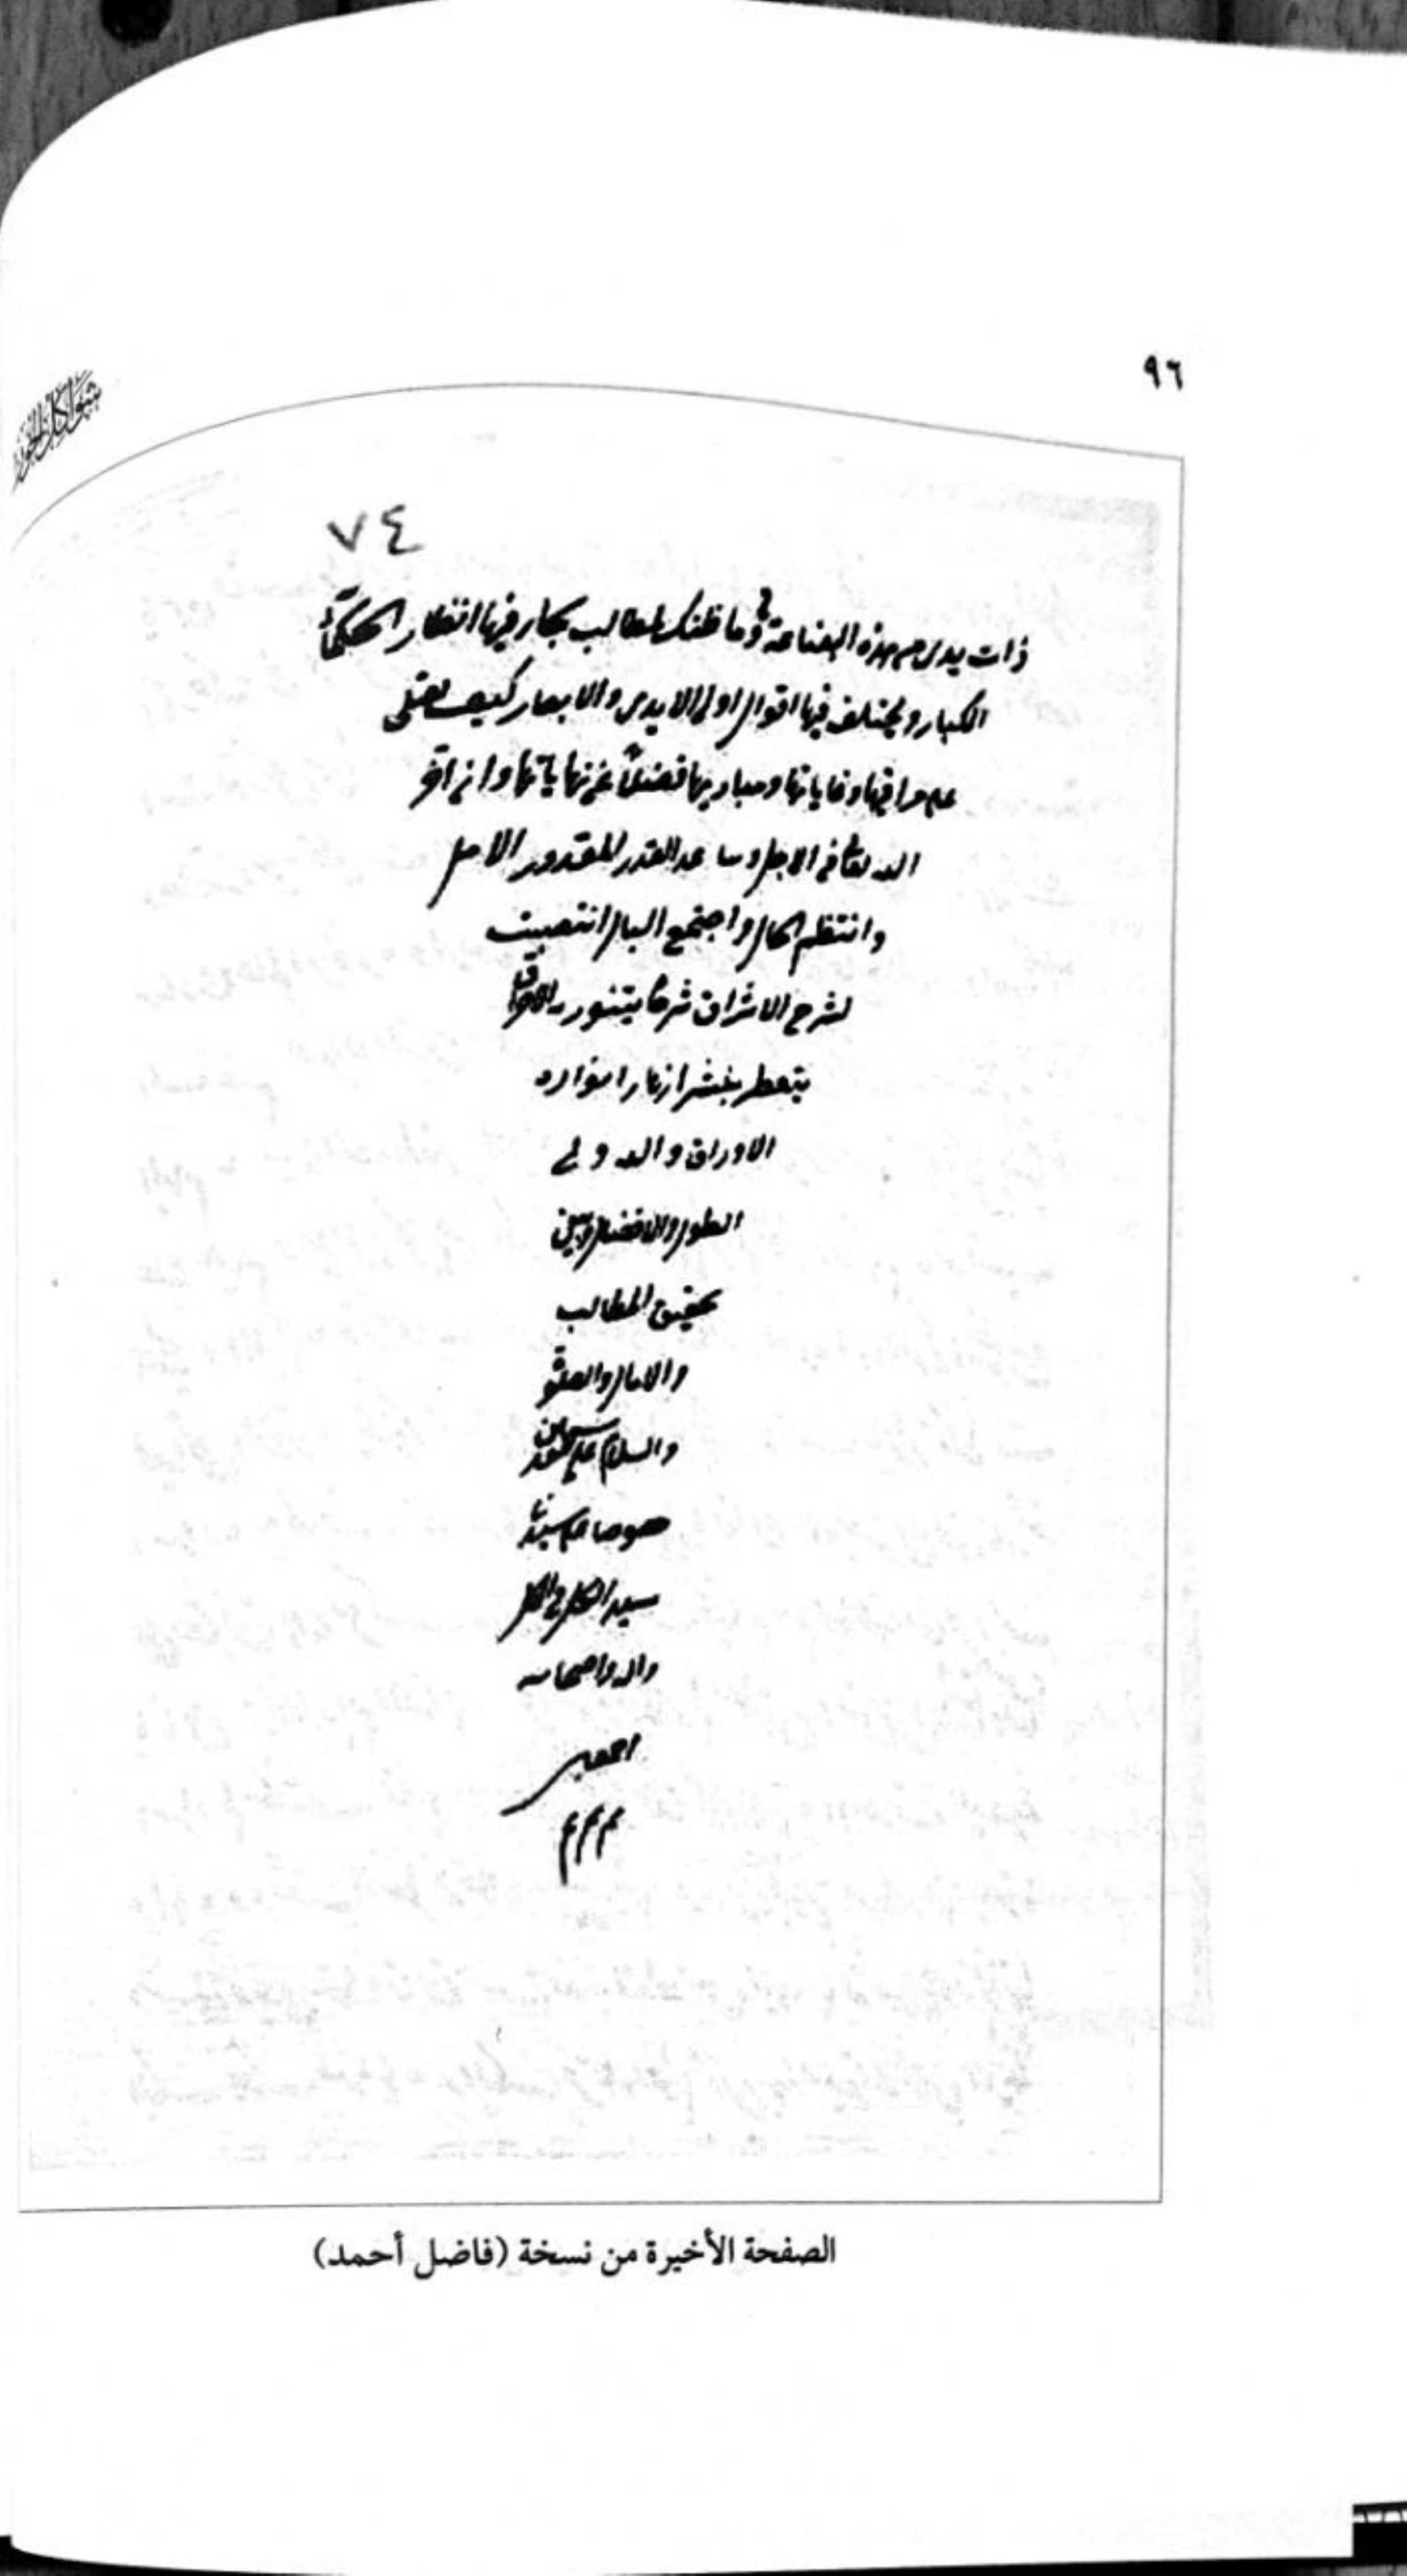 ٩٦
٧٤
ذات يدي من هذه البضاعة وما ظنك بمطالب يحار فيها انظار الحكماء
الكبار ويختلف فيها اقوال اولى الايدى والابصار كيف
وغاياتها ومباديها فضلا عن نهاياتها وان اخر
الله تعالى فى الاجل وساعد القدر المقدور الامل
وانتظم الحال واجتمع البال انتصبت
لشرح الاشراق شرحا يتنور به الافاق
يتعطر بنشر ازهار انواره
الاوراق والله ولى
الطول والافضال
تحقيق المطالب
والامال والصلوة
والسلام على
سيدنا
سيد الكل فى الكل
واله واصحابه
اجمعين
م م م
الصفحة الأخيرة من نسخة (فاضل أحمد)